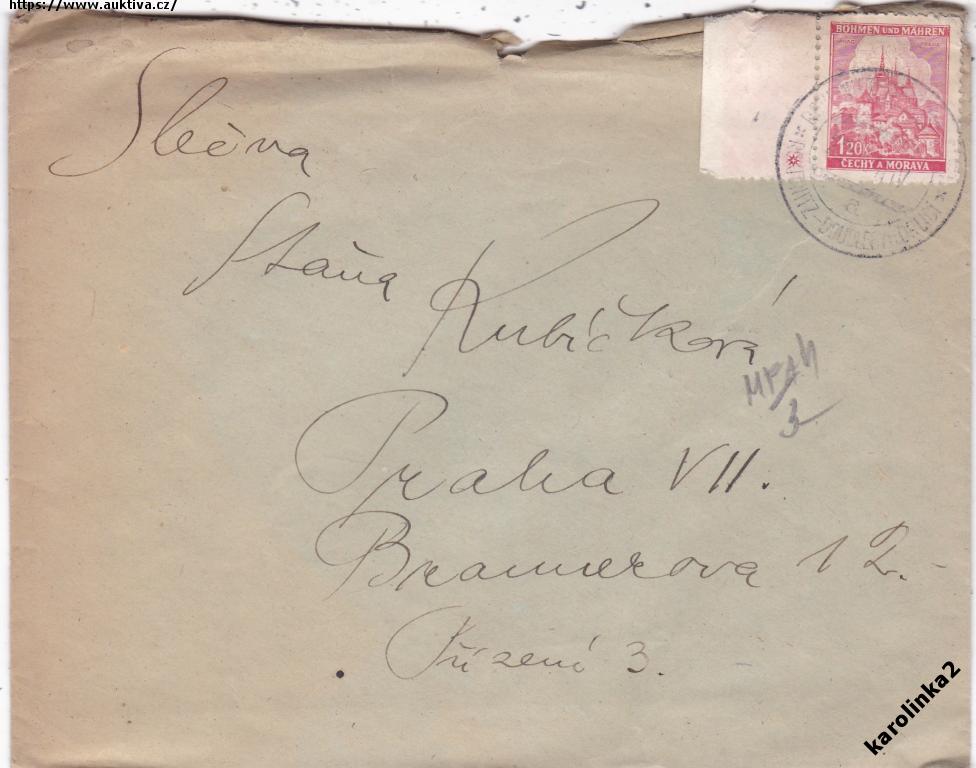 https://www.auktiva.cz/
BÖHMEN UND MÄHREN
1.20K
ČECHY A MORAVA
a
Slečna
Stáňa
Kubíčková
3
Praha VII.
Bramerova 12.-
Přízemí 3.
karolinka2